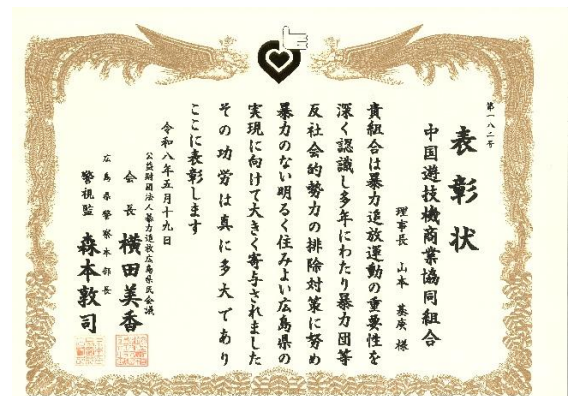 第一八二号
表彰状
中国遊技機商業協同組合
理事長 山本 基庚 様
貴組合は暴力追放運動の重要性を
深く認識し多年にわたり暴力団等
反社会的勢力の排除対策に努め
暴力のない明るく住みよい広島県の
実現に向けて大きく寄与されました
その功労は真に多大であり
ここに表彰します
令和八年五月十九日
公益財団法人暴力追放広島県民会議
会長 横田美香
広島県警察本部長
警視監 森本敦司